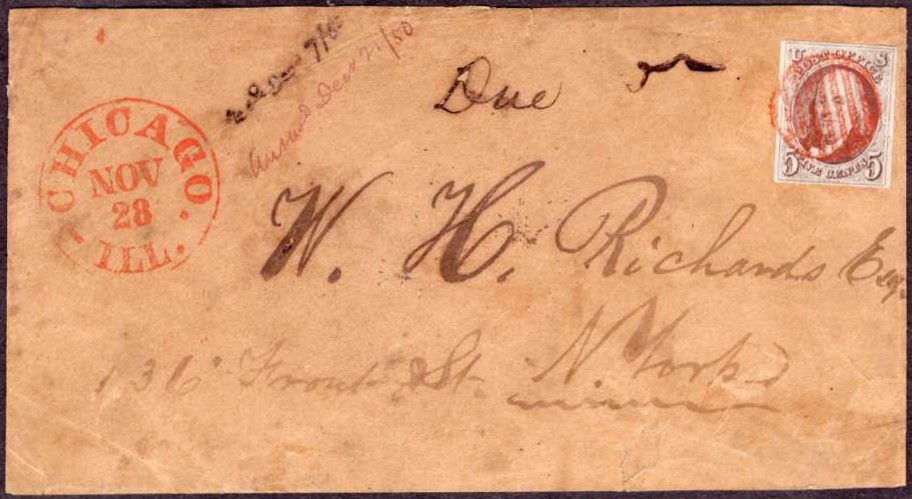 CHICAGO.
NOV
28
ILL.
Dec 21/50
Due 5
U S
POST OFFICE
FIVE CENTS
5 5
W. H. Richards Esq.
136 Front St. N York